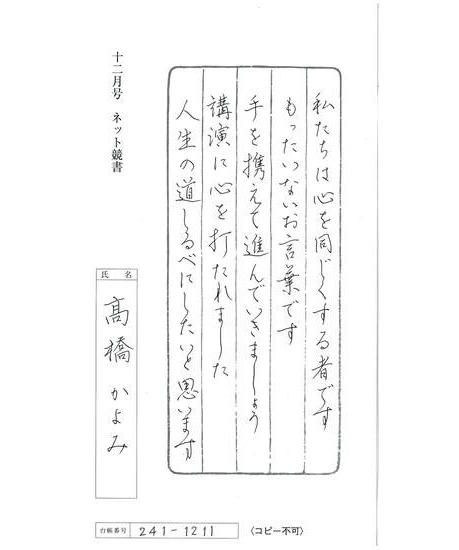 私たちは心を同じくする者です
もったいないお言葉です
手を携えて進んでいきましょう
講演に心を打たれました
人生の道しるべにしたいと思います
十二月号 ネット競書
氏名
髙橋 かよみ
台帳番号 241-1211
〈コピー不可〉